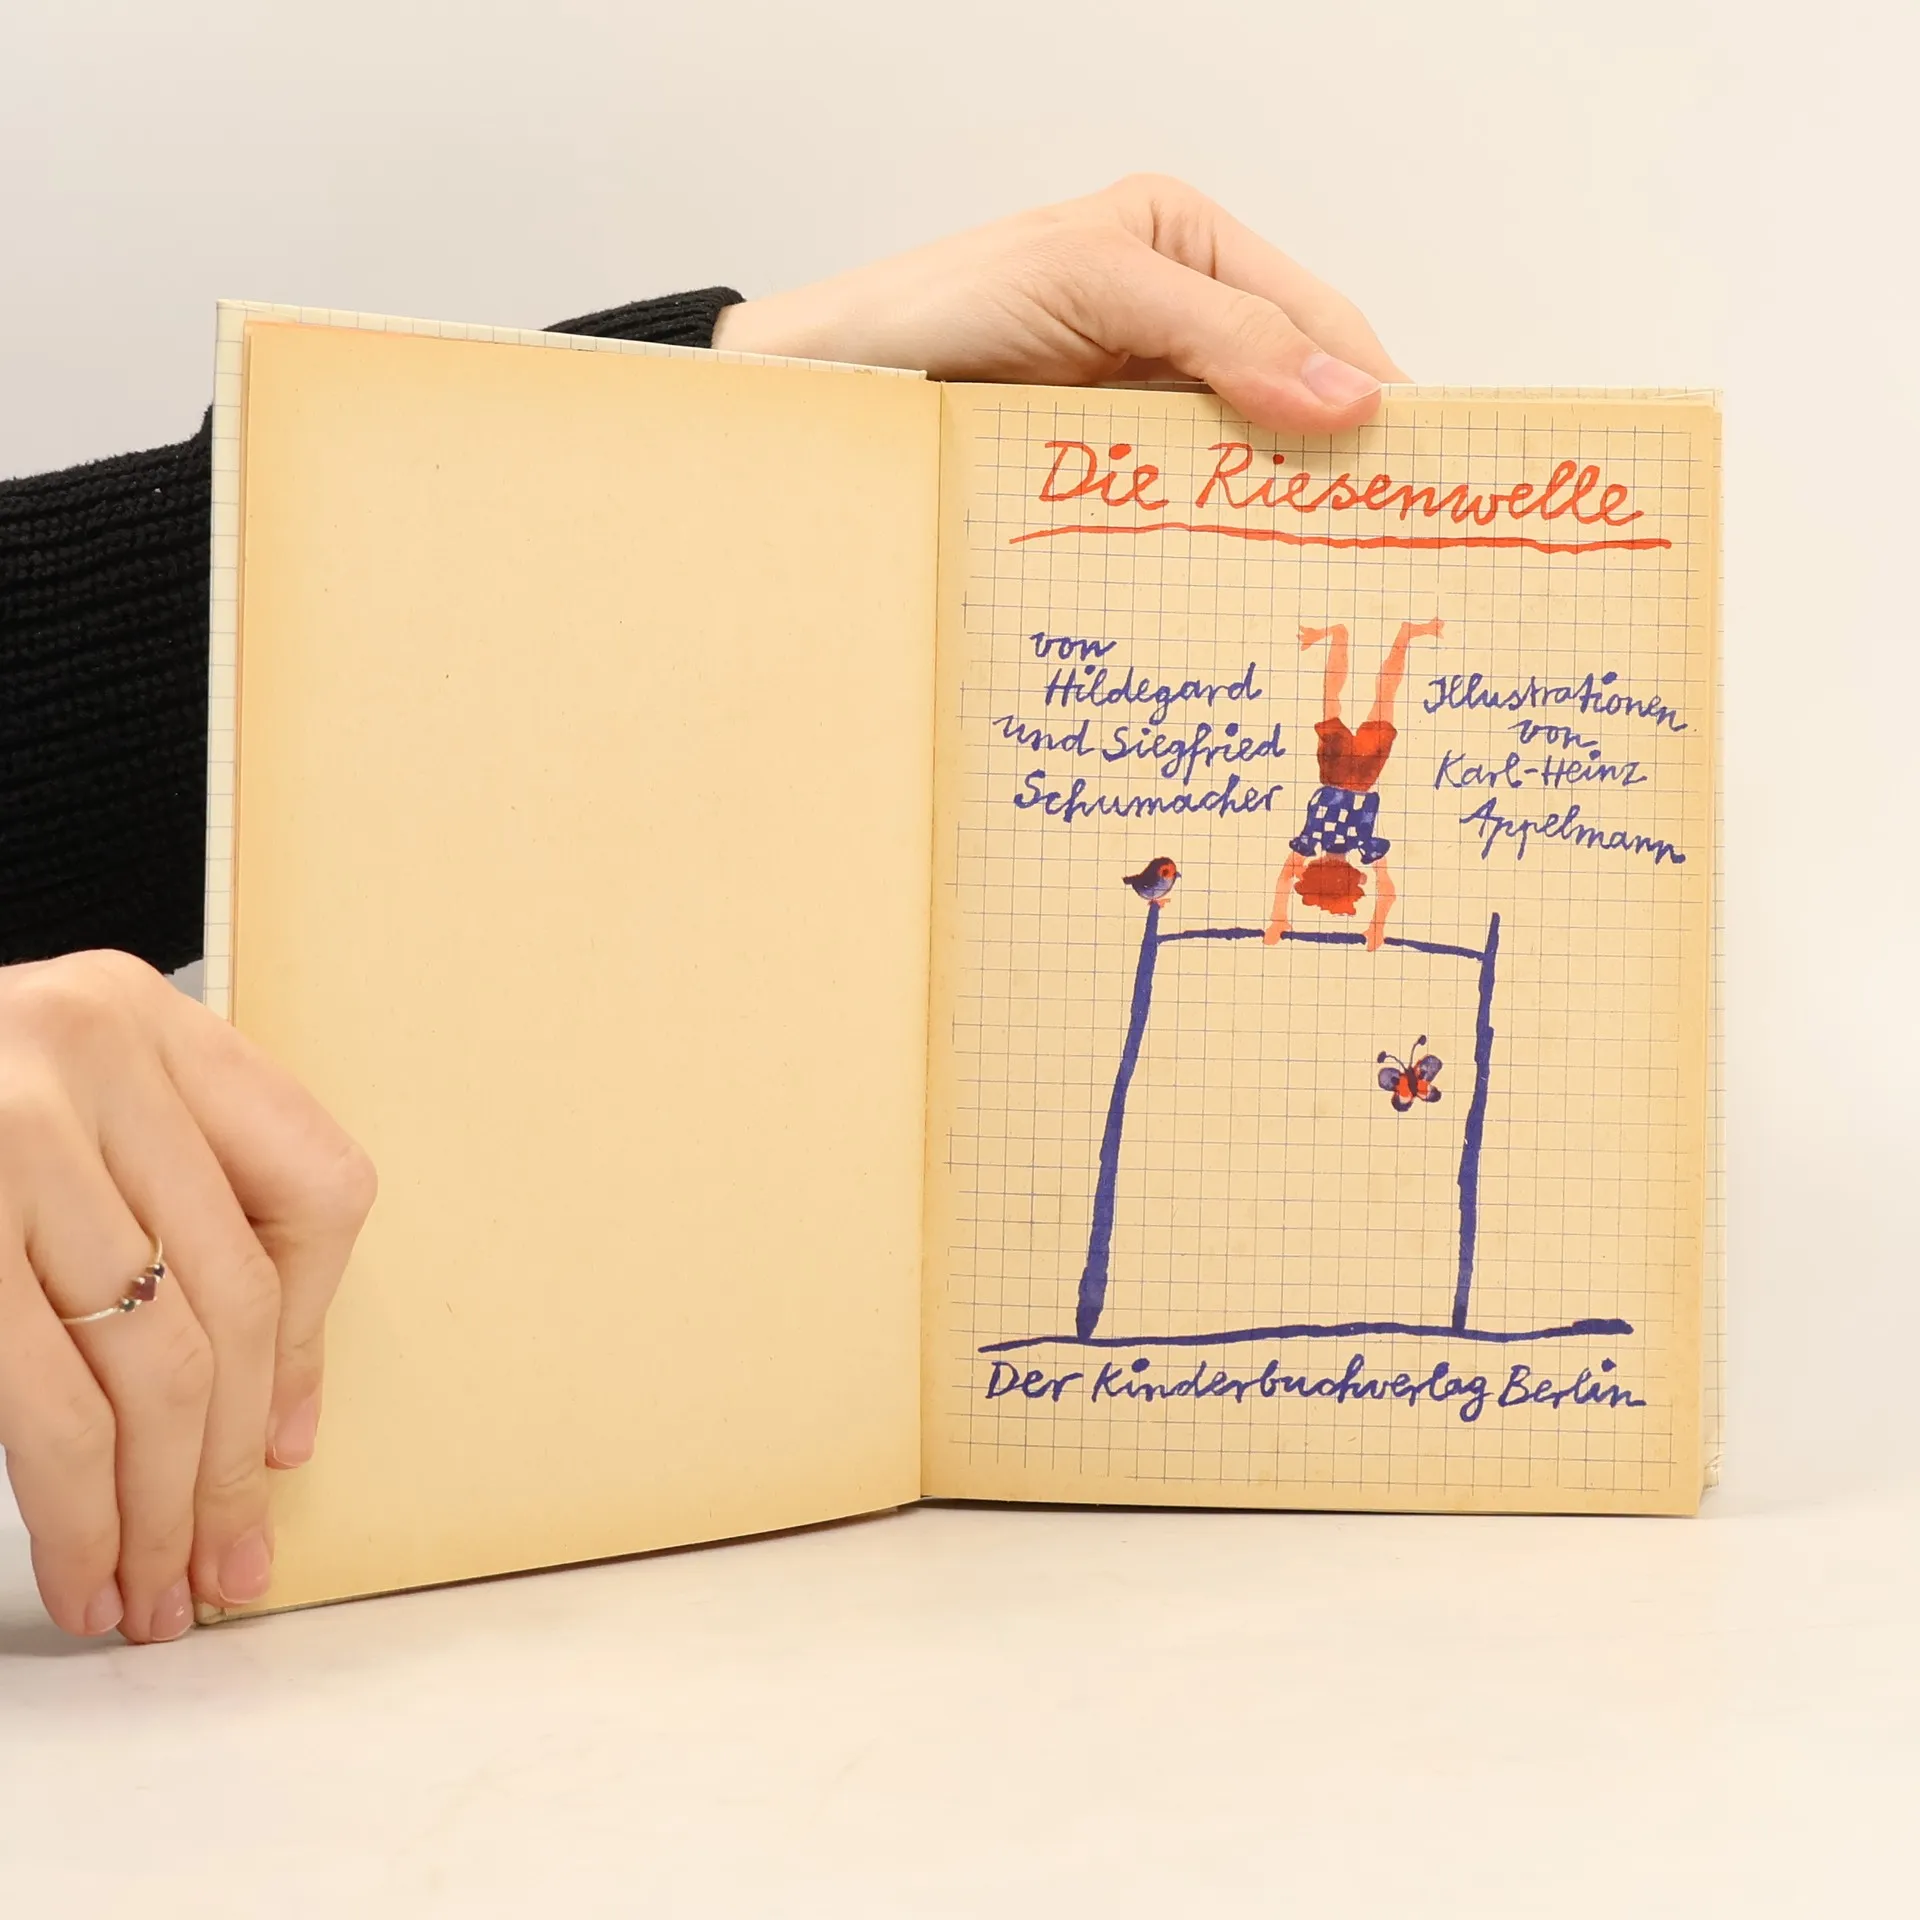 Die Riesenwelle
von
Hildegard
und Siegfried
Schumacher
Illustrationen
von
Karl-Heinz
Appelmann
Der Kinderbuchverlag Berlin